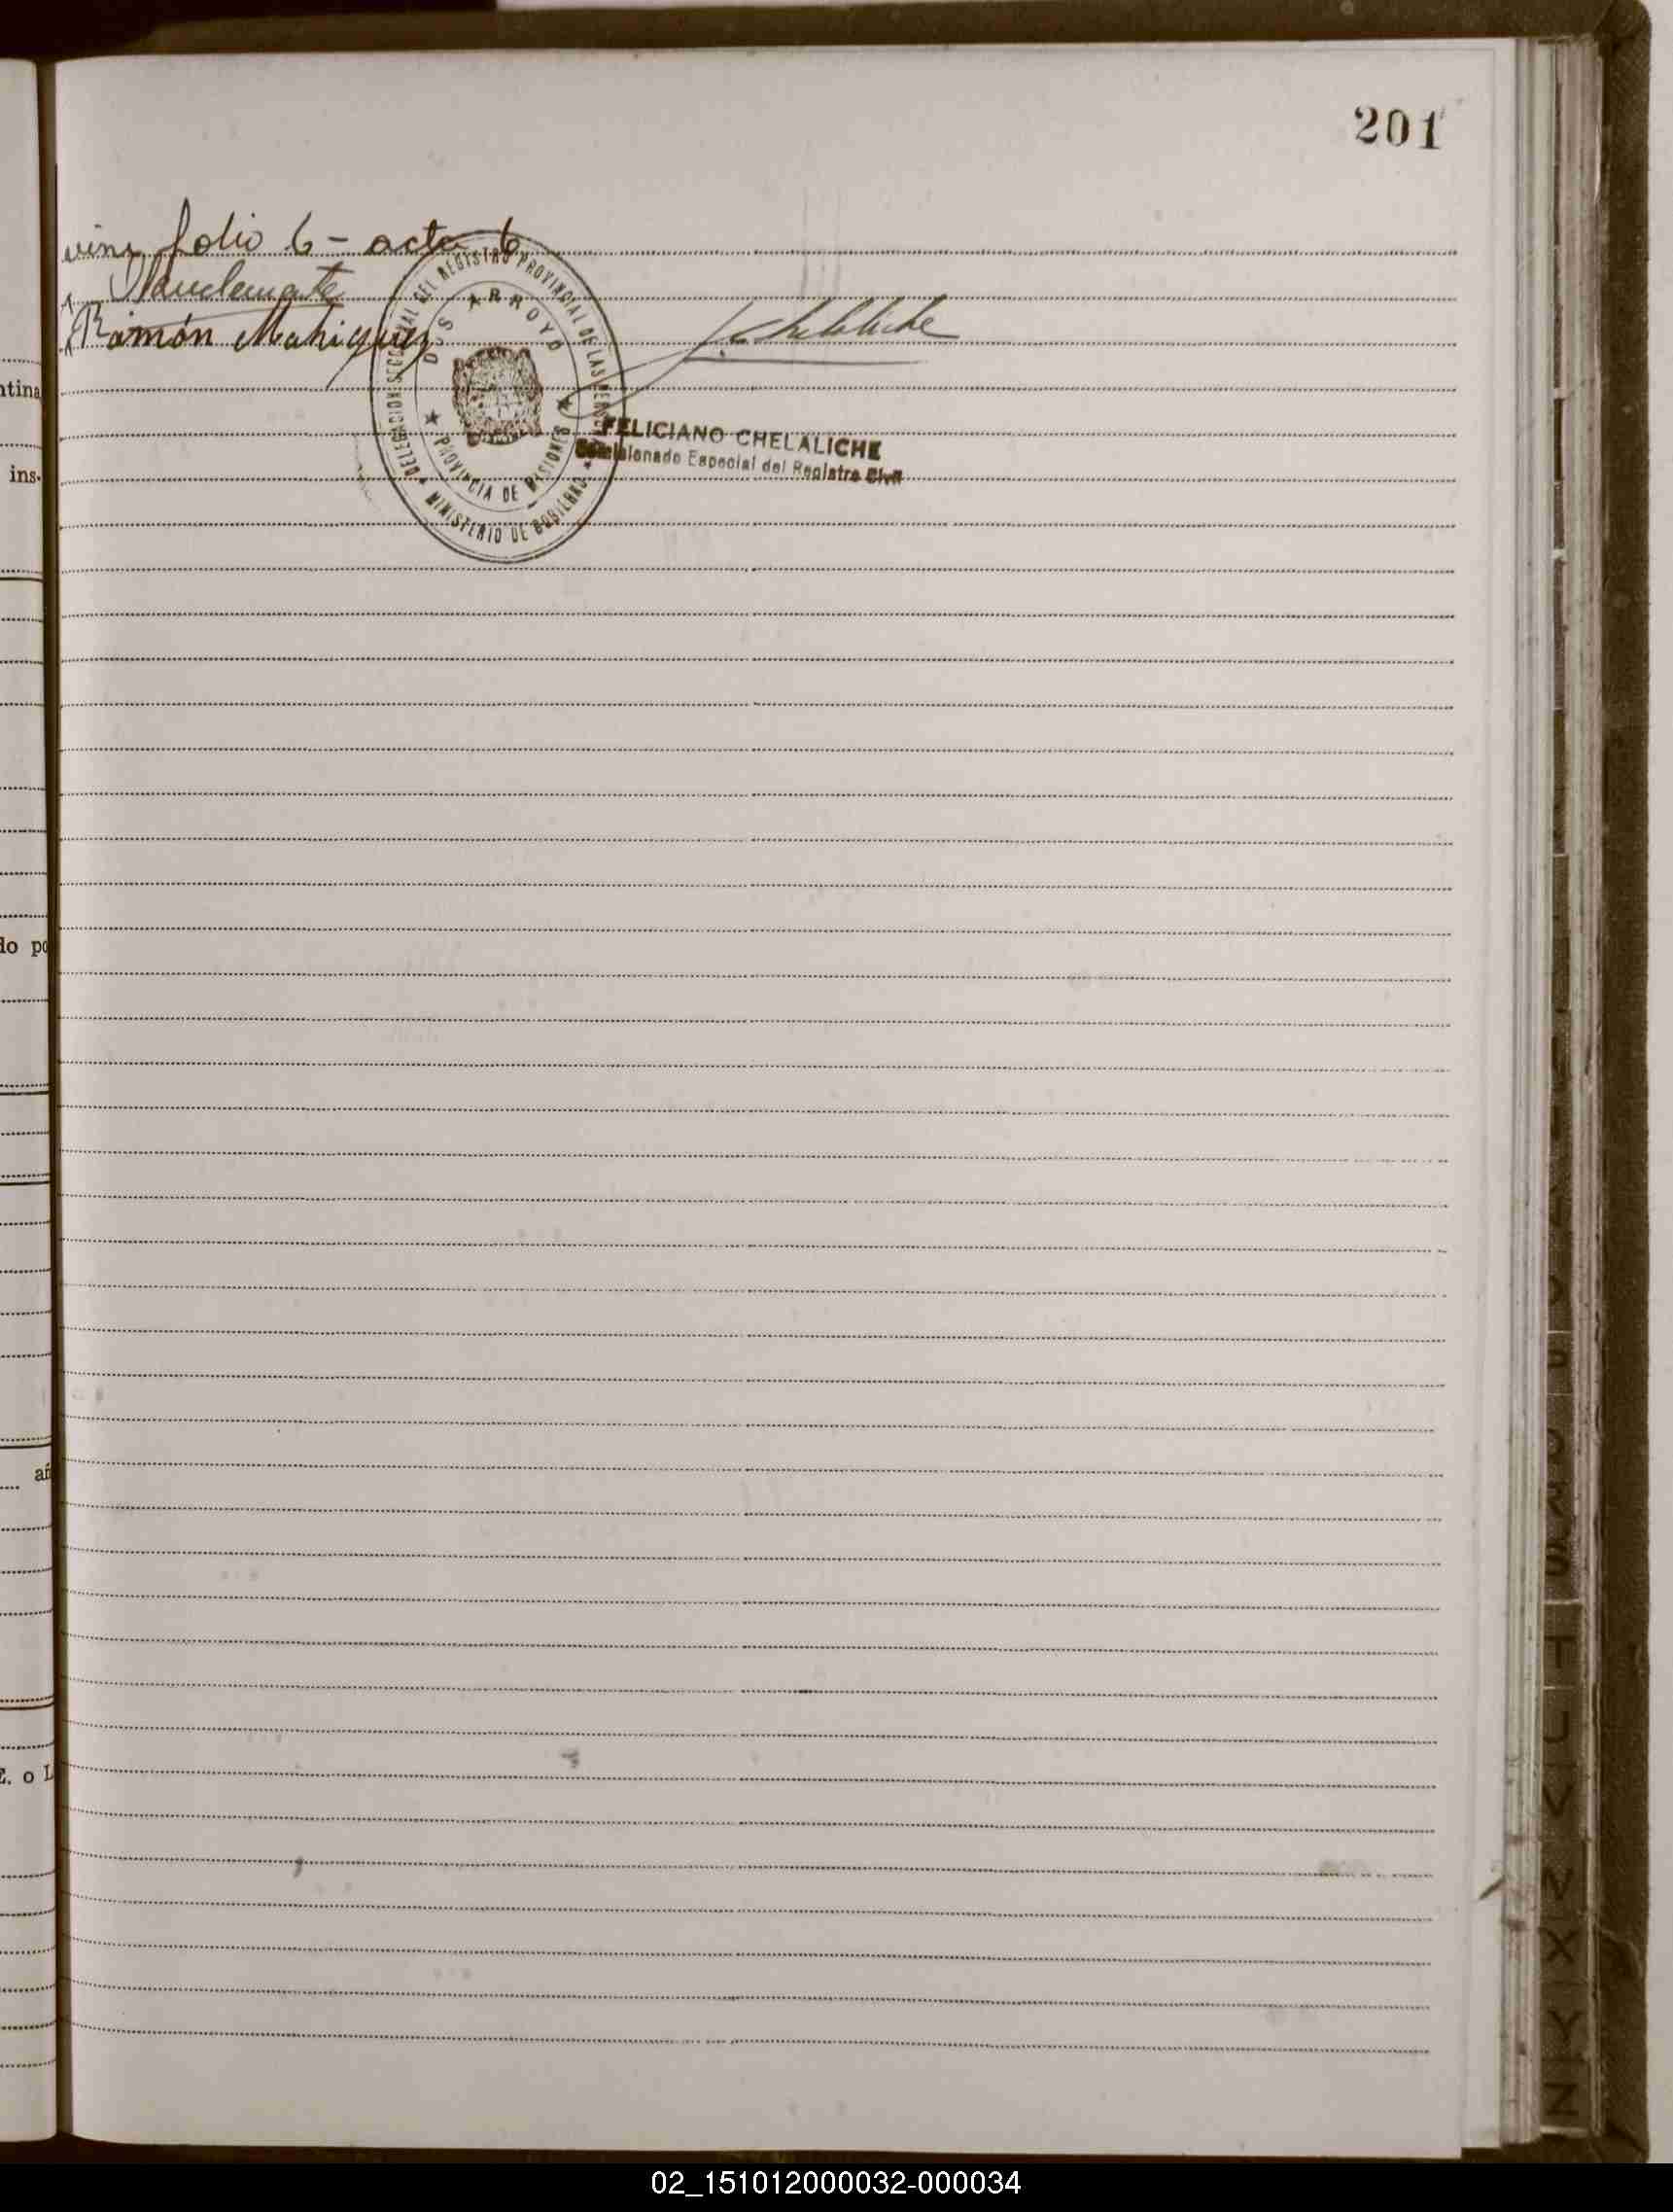 201
folio 6 - acta 6
Ramón Mahiquez
DELEGACION SECCIONAL DEL REGISTRO PROVINCIAL DE LAS PERSONAS
DOS ARROYO
PROVINCIA DE MISIONES
MINISTERIO DE GOBIERNO
FELICIANO CHELALICHE
Comisionado Especial del Registro Civil
ntina
ins-
do po
añ
E. o L
T
U
V
X
Y
Z
02_151012000032-000034